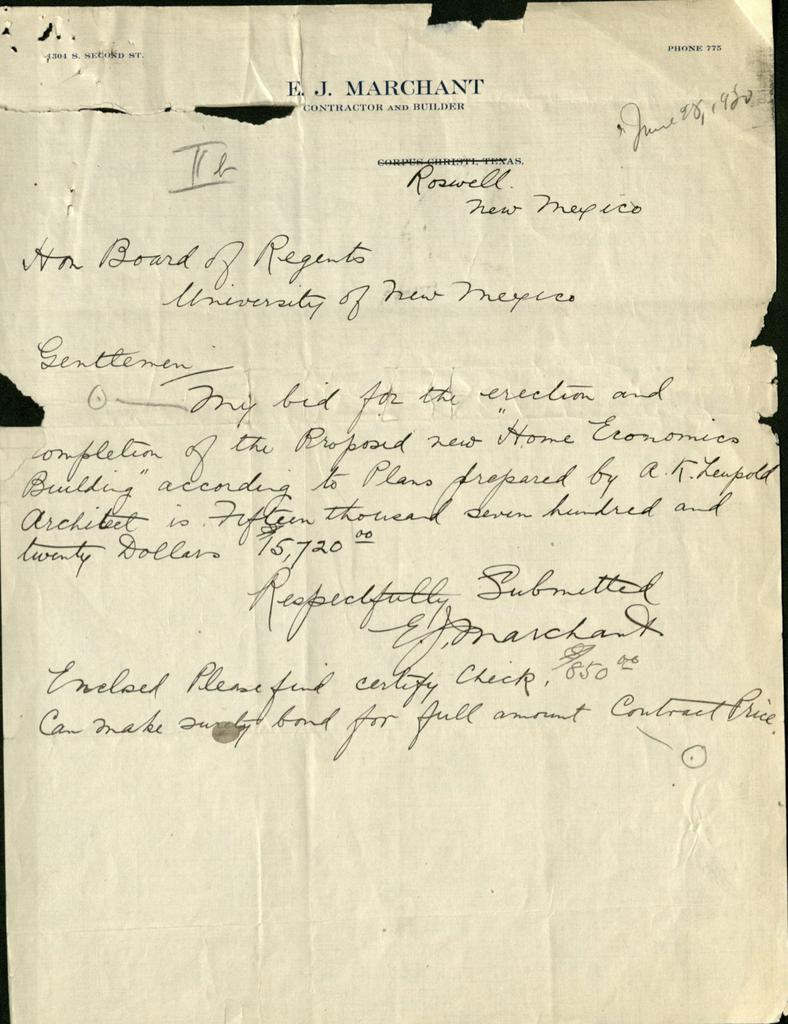 1301 S. SECOND ST.
PHONE 775
E. J. MARCHANT
CONTRACTOR AND BUILDER
June 28, 1920
II b
CORPUS CHRISTI, TEXAS.
Roswell.
New Mexico
Hon Board of Regents
University of New Mexico
Gentlemen
My bid for the erection and
completion of the Proposed new "Home Economics
Building" according to Plans prepared by A. K. Leupold
Architect is Fifteen thousand seven hundred and
twenty Dollars $15,720 00
Respectfully Submitted
E. J. Marchant
Enclosed Please find certify Check, $850 00
Can make surety bond for full amount Contract Price.